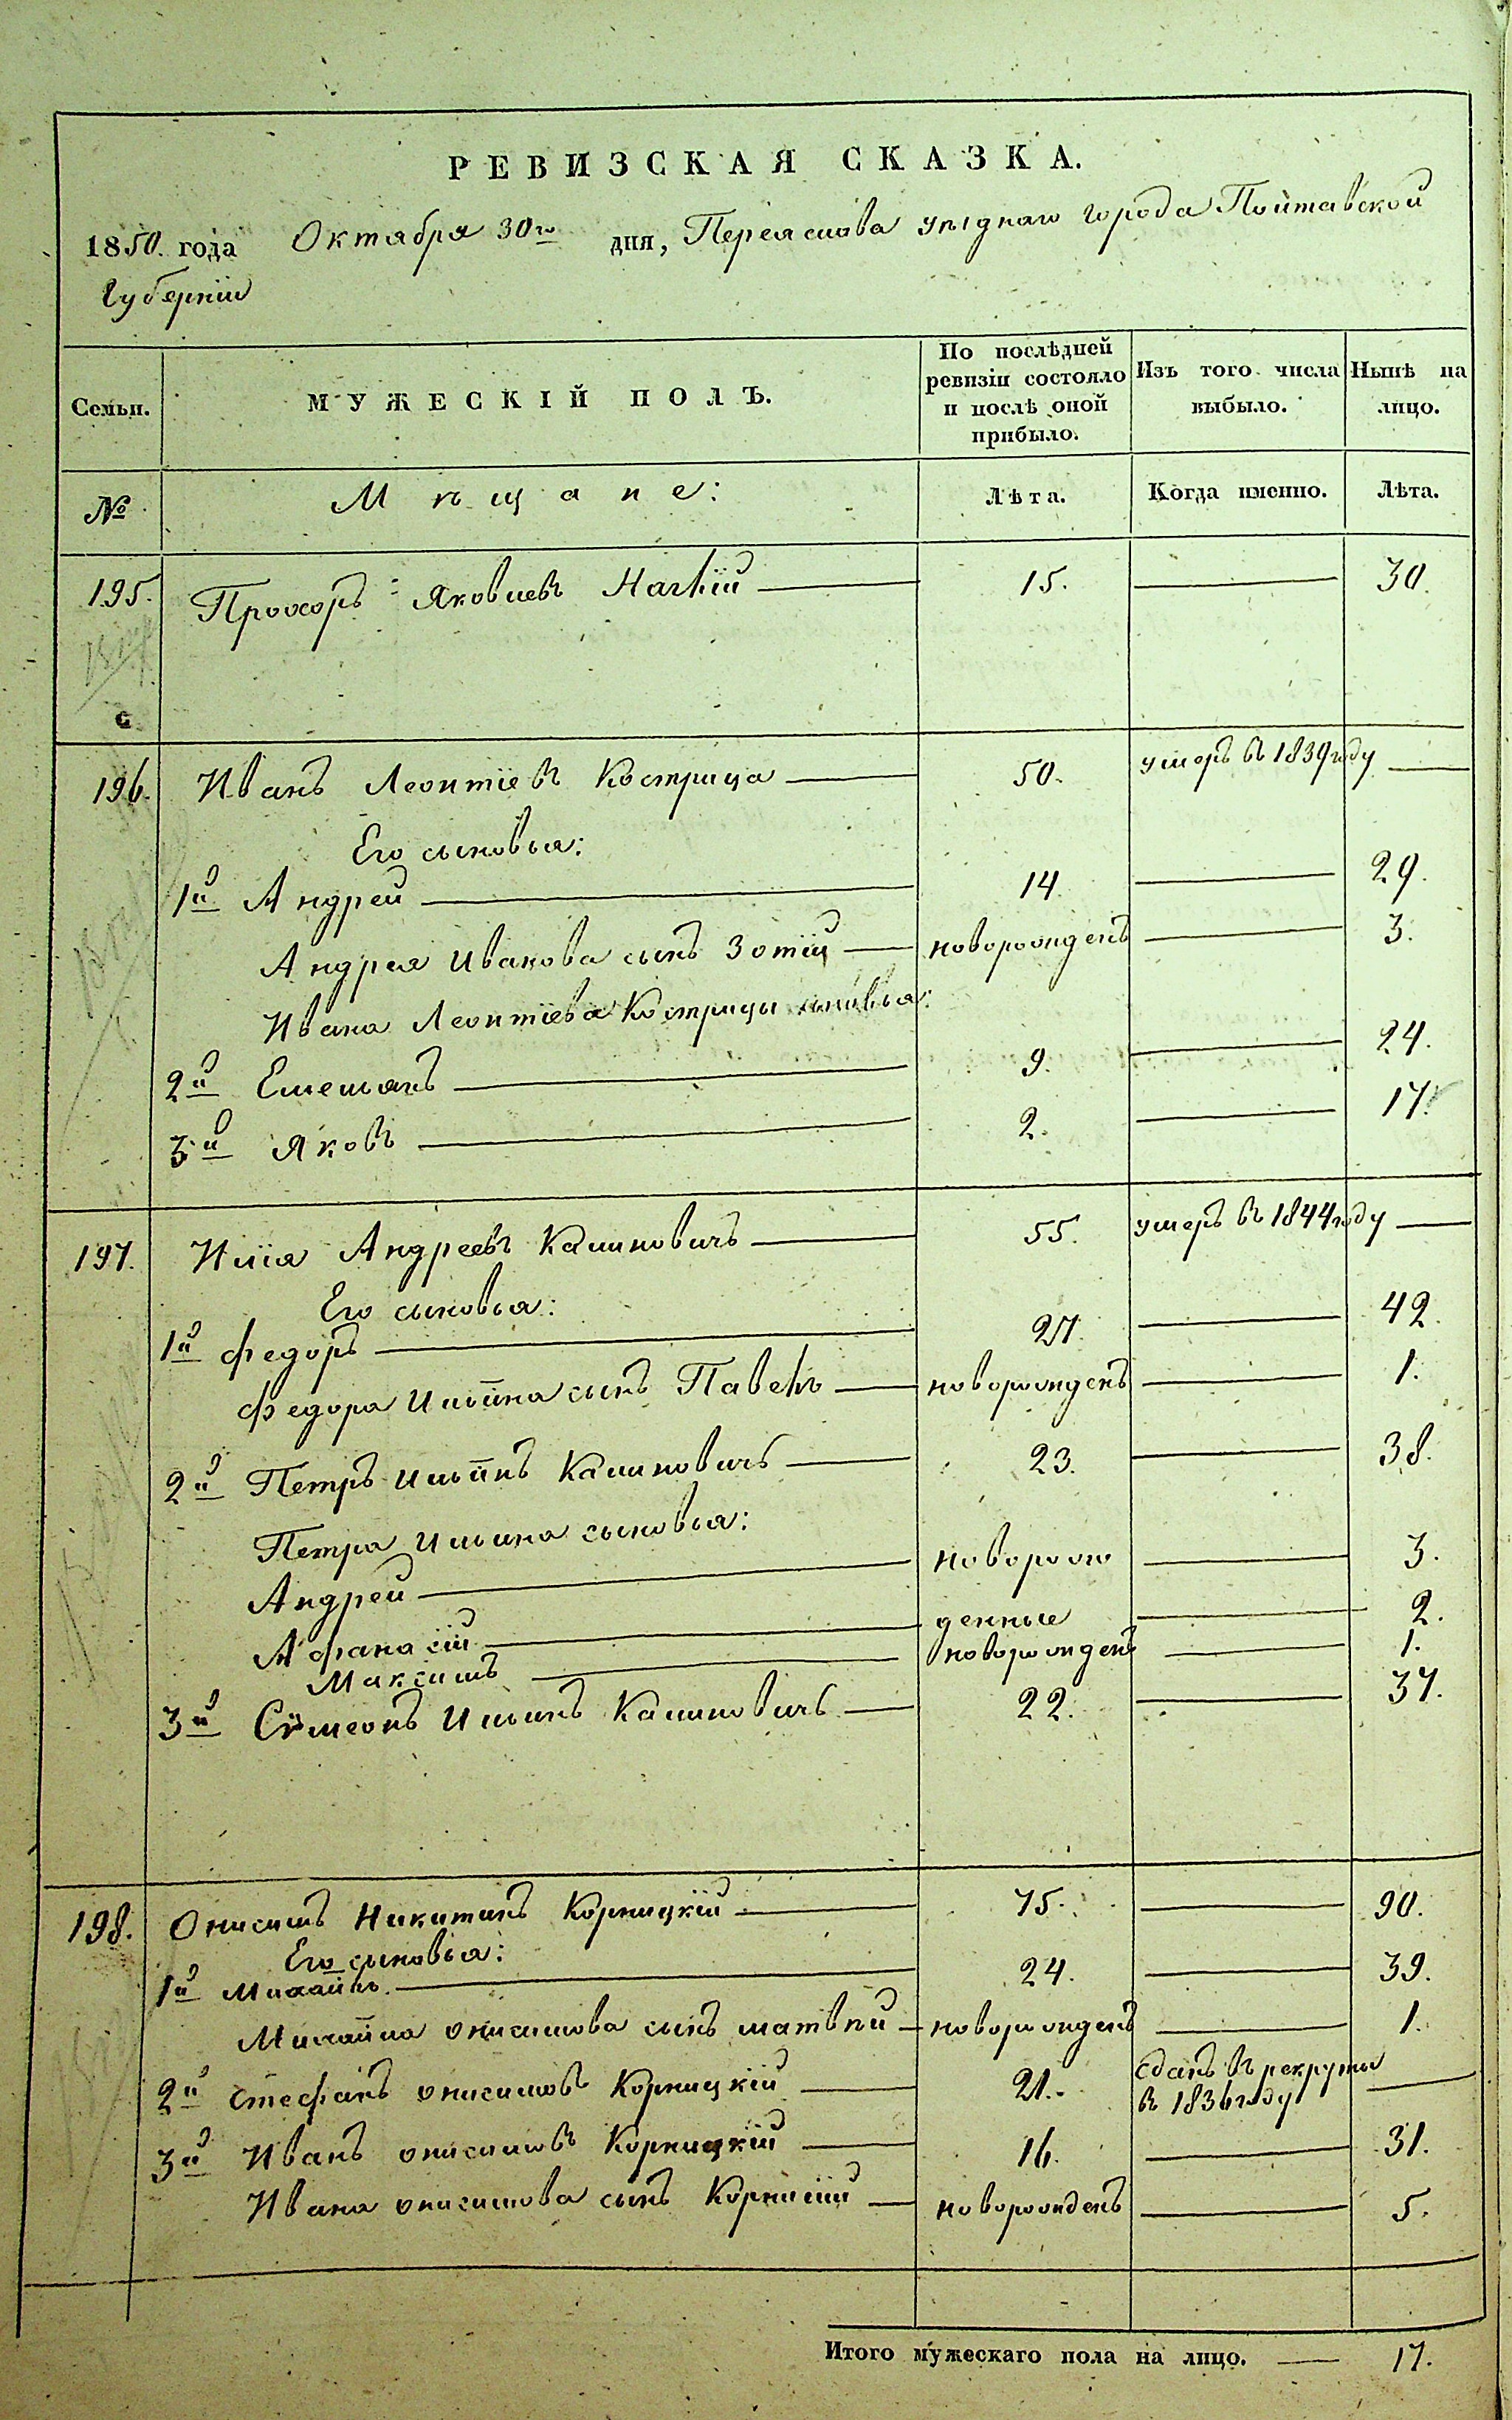 РЕВИЗСКАЯ СКАЗКА.
1850. года Октября 30го дня, Переяслова уѣзднаго города Полтавской
Губерніи
Семьи. МУЖЕСКІЙ ПОЛЪ. По послѣдней ревизіи состояло и послѣ оной прибыло. Изъ того числа выбыло. Нынѣ на лицо.
№ Мѣщане: Лѣта. Когда именно. Лѣта.
195. Прохоръ Яковлевъ 15. 30.
196. Иванъ Леонтіевъ Кострица 50. умеръ въ 1839 году
Его сыновья:
1й Андрей 14. 29.
Андрея Иванова сынъ Зотій новорожденъ 3.
Ивана Леонтіева Кострицы сыновья:
2й Емельянъ 9. 24.
3й Яковъ 2. 17.
197. Илія Андреевъ Калиновичъ 55. умеръ въ 1844 году
Его сыновья:
1й Федоръ 27. 42.
Федора Ильина сынъ Павелъ новорожденъ 1.
2й Петръ Ильинъ Калиновичъ 23. 38.
Петра Ильина сыновья:
Андрей новорож 3.
Афанасій денные 2.
Максимъ новорожденъ 1.
3й Сѵмеонъ Ильинъ Калиновичъ 22. 37.
198. Онисимъ Никитинъ Корницкій 75. 90.
Его сыновья:
1й Михайлъ 24. 39.
Михайла Онисимова сынъ Матвѣй новорожденъ 1.
2й Стефанъ Онисимовъ Корницкій 21. сданъ въ рекруты
въ 1836 году
3й Иванъ Онисимовъ Корницкій 16. 31.
Ивана Онисимова сынъ Корнилій новорожденъ 5.
Итого мужескаго пола на лицо. 17.